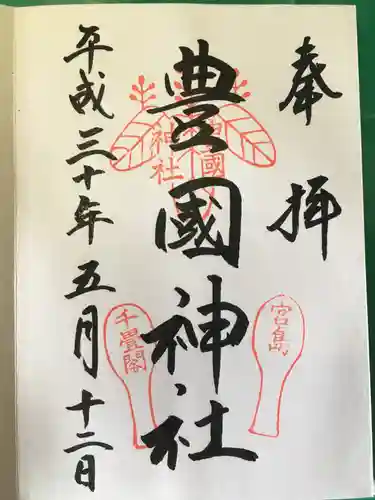 奉拝
豊國神社
平成三十年五月十二日
宮島
千畳閣